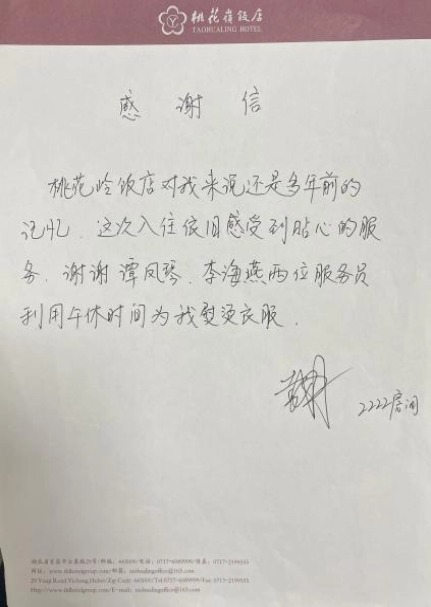 桃花岭饭店
TAOHUALING HOTEL
感谢信
桃花岭饭店对我来说还是多年前的
记忆.这次入住依旧感受到贴心的服
务.谢谢谭凤琴.李海燕两位服务员
利用午休时间为我熨烫衣服.
2222房间